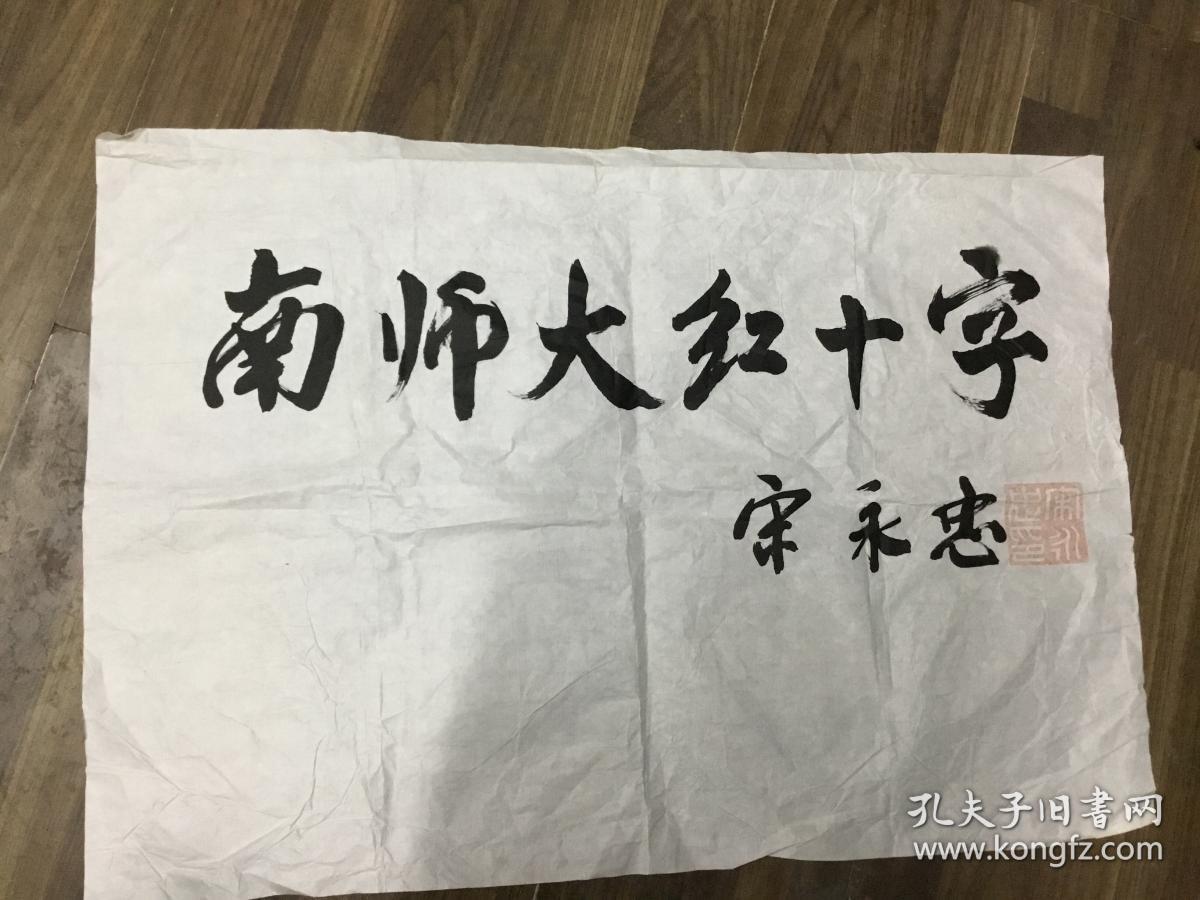 南师大红十字
宋永忠
宋永忠印
孔夫子旧書网
www.kongfz.com